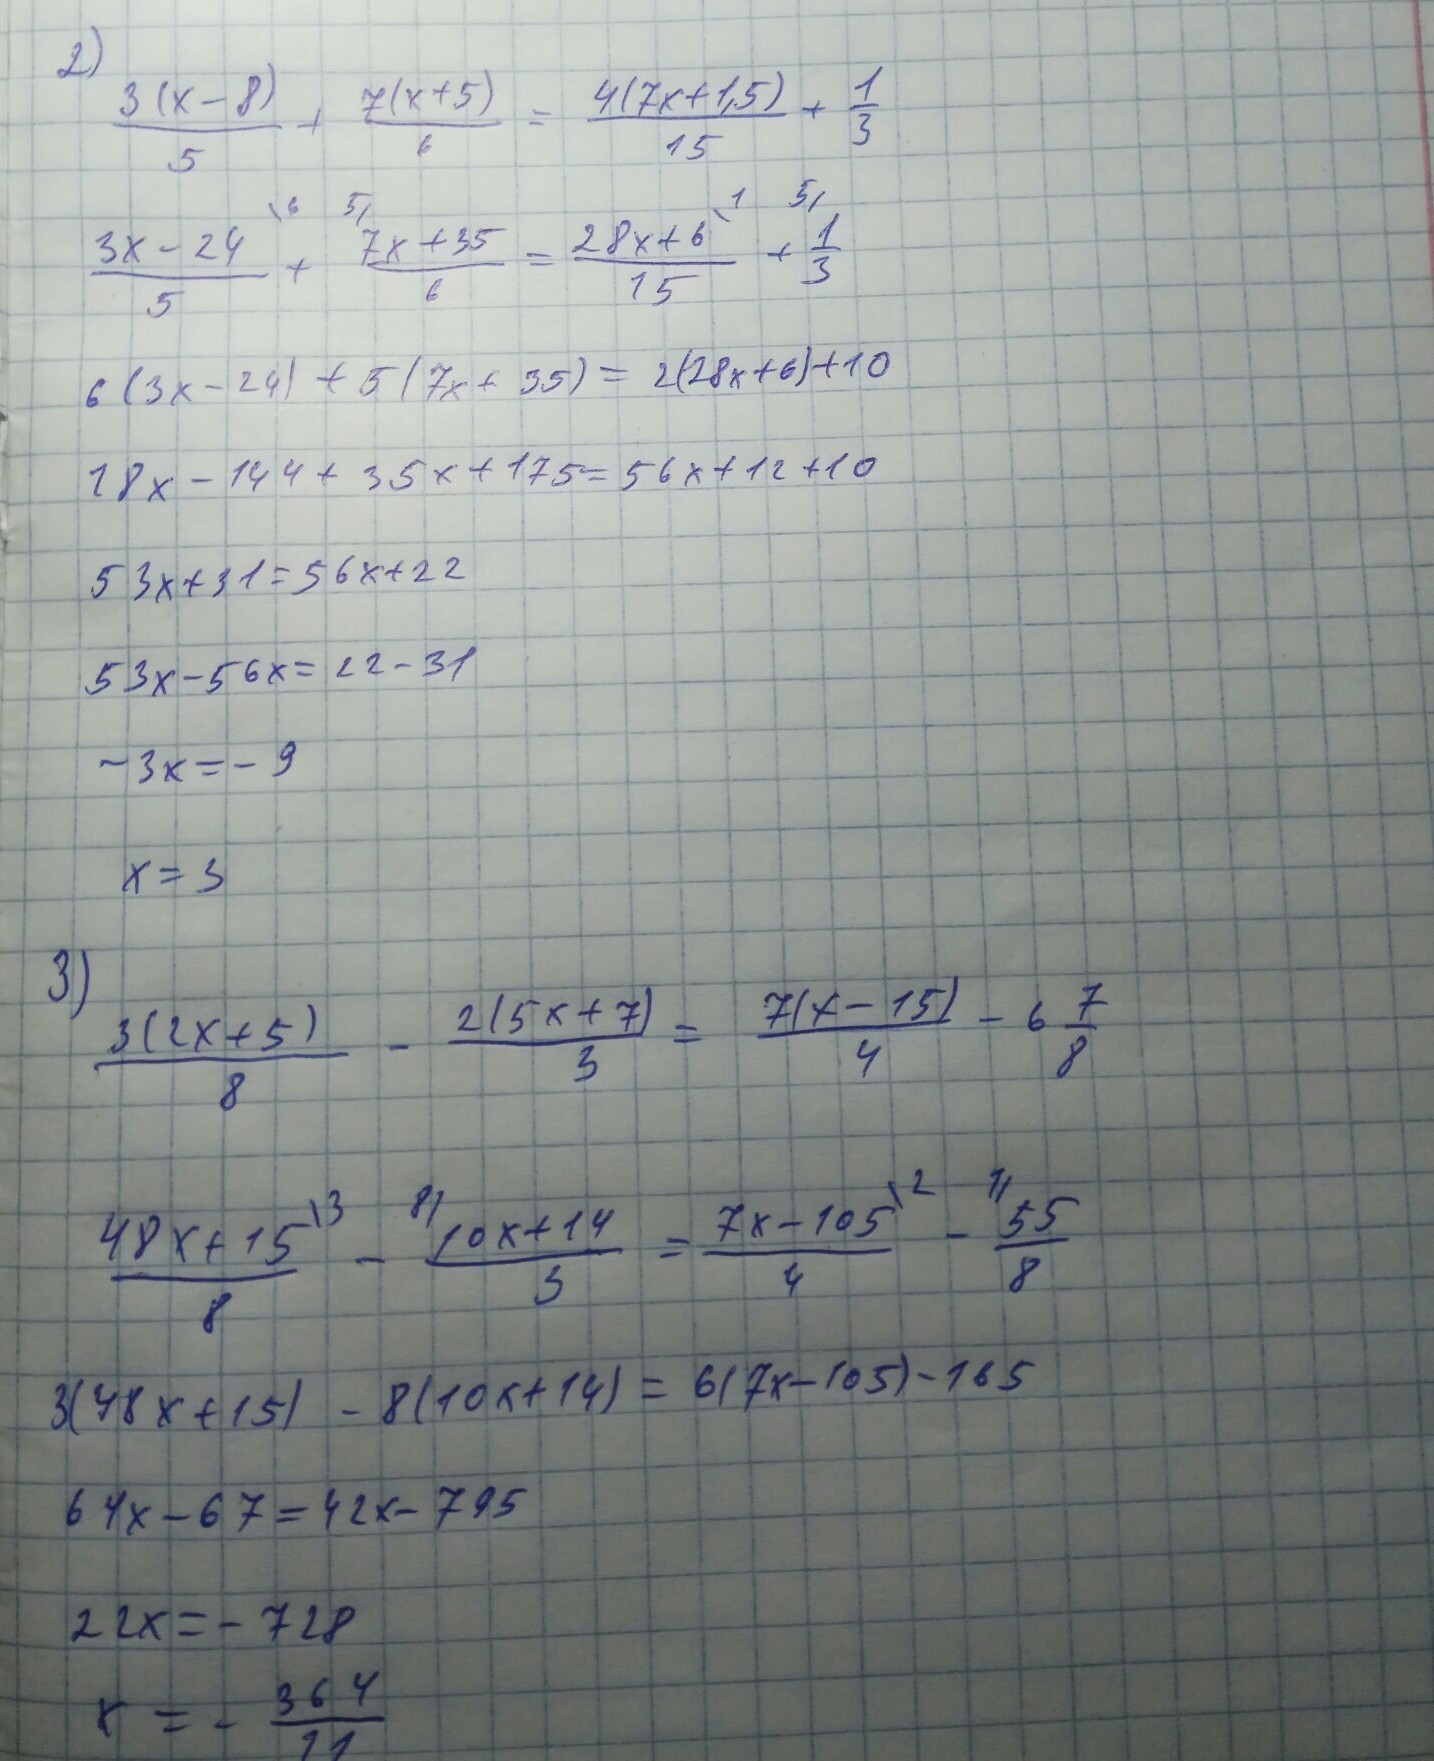 2)
3(x-8)/5 + 7(x+5)/6 = 4(7x+1,5)/15 + 1/3
3x-24\6/5 + 5/7x+35/6 = 28x+6\1/15 + 5/1/3
6(3x-24)+5(7x+35)=2(28x+6)+10
18x-144+35x+175=56x+12+10
53x+31=56x+22
53x-56x=22-31
-3x=-9
x=3
3)
3(2x+5)/8 - 2(5x+7)/3 = 7(x-15)/4 - 6 7/8
48x+15\3/8 - 8/10x+14/3 = 7x-105\2/4 - 1/55/8
3(48x+15)-8(10x+14)=6(7x-105)-165
64x-67=42x-795
22x=-728
x=-364/11